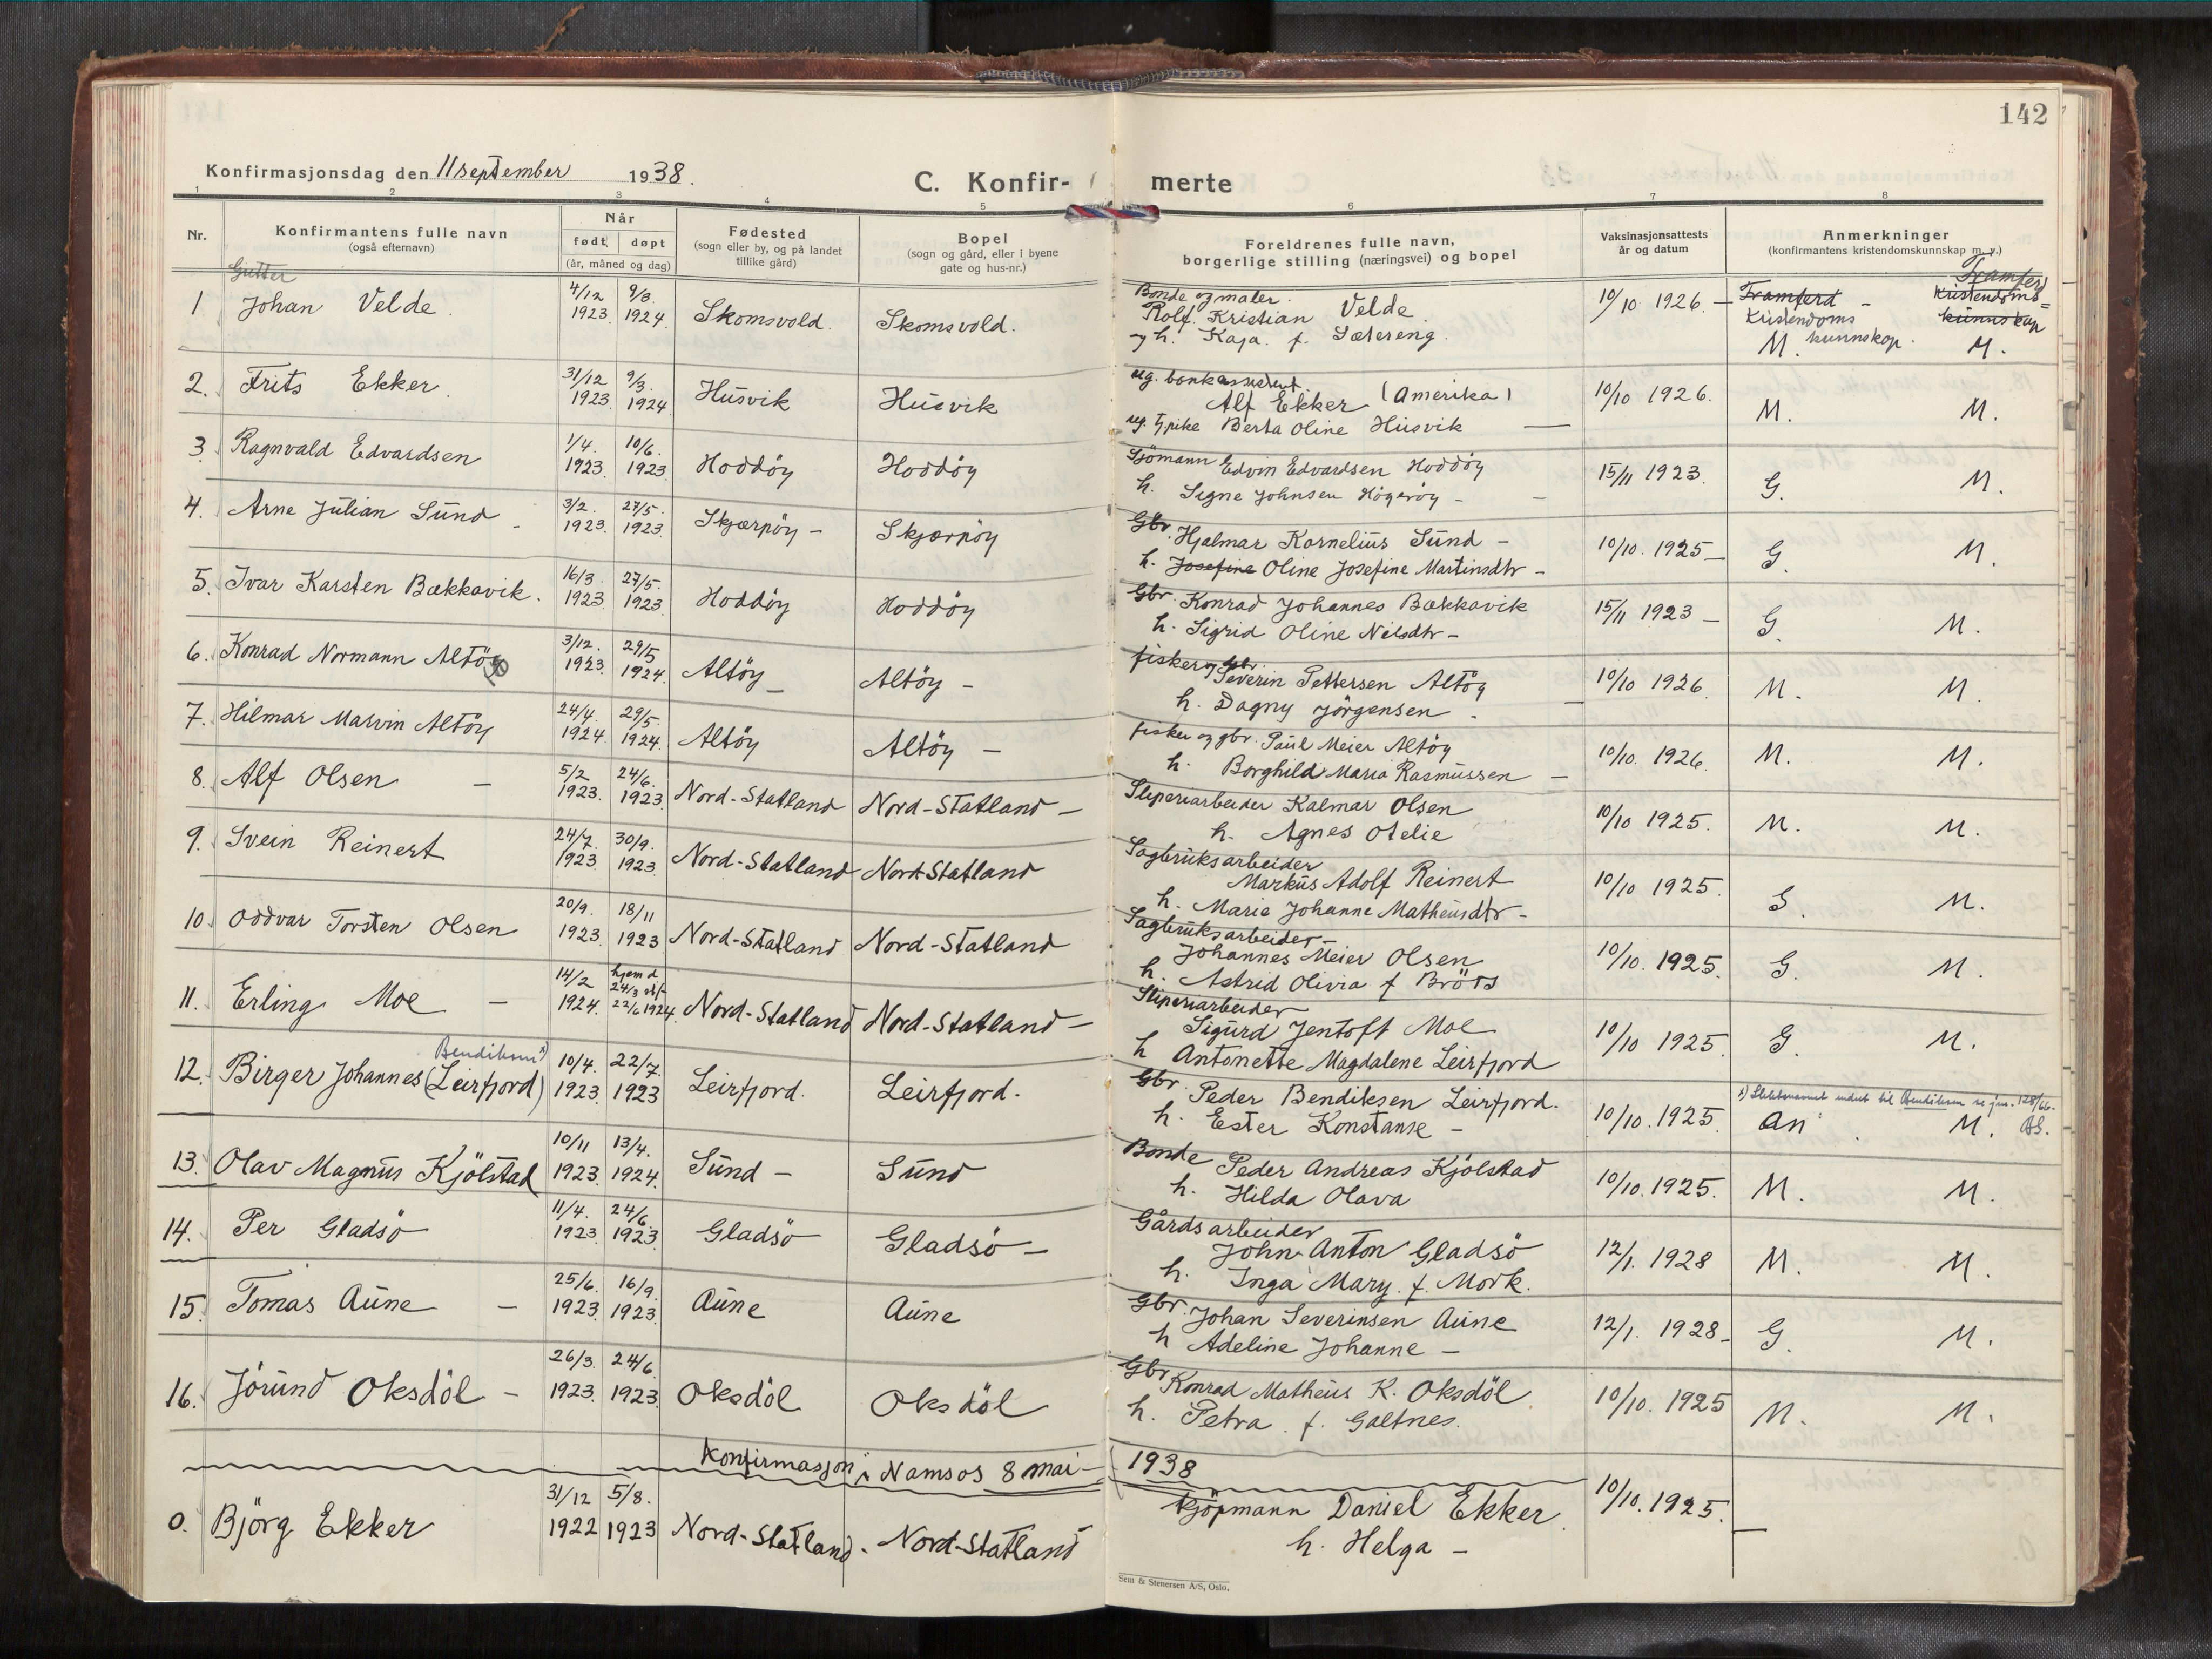 142
Konfirmasjonsdag den 11 september 1938.
C. Konfir- merte
1 2 3 4 5 6 7 8
Nr.
Konfirmantens fulle navn
(også efternavn)
Når
født døpt
(år, måned og dag)
Fødested
(sogn eller by, og på landet
tillike gård)
Bopel
(sogn og gård, eller i byene
gate og hus-nr.)
Foreldrenes fulle navn,
borgerlige stilling (næringsvei) og bopel
Vaksinasjonsattests
år og datum
Anmerkninger
(konfirmantens kristendomskunnskap m. v.)
Gutter
1 Johan Velde. 4/12 1923 9/3. 1924 Skomsvold. Skomsvold.
Bonde og maler.
Rolf Kristian Velde.
og h. Kaja. f. Sætereng.
10/10 1926. — Framferd - Kristendoms kunnskap. M.
Framferd Kristendoms= kunnskap M.
2. Frits Ekker. 31/12 1923 9/3. 1924 Husvik Husvik
ug. bankassistent.
Alf Ekker (Amerika)
ug. pike Berta Oline Husvik —
10/10 1926. M. M.
3. Ragnvald Edvardsen 1/4. 1923 10/6. 1923 Hoddöy Hoddöy
Sjömann Edvin Edvardsen Hoddöy
h. Signe Johnsen Högeröy -
15/11 1923. G. M.
4. Arne Julian Sund - 3/2. 1923. 27/5. 1923. Skjærpöy - Skjærpöy
Gbr. Hjalmar Kornelius Sund -
h. Josefine Oline Josefine Martinsdtr -
10/10. 1925 — G. M.
5. Ivar Karsten Bækkavik. 16/3. 1923. 27/5. 1923. Hoddöy Hoddöy
Gbr. Konrad Johannes Bækkavik
h. Sigrid Oline Nelsdtr -
15/11 1923 — G. M.
6. Konrad Normann Altöy 3/12. 1923 29/5 1924. Altöy - Altöy -
fisker og gbr.
Severin Pettersen Altöy
h. Dagny Jörgensen. —
10/10 1926. M. M.
7. Hilmar Marvin Altöy 24/4. 1924. 29/5. 1924. Altöy Altöy -
fisker og gbr. Paul Meier Altöy
h. Borghild Maria Rasmussen -
10/10. 1926. M. M.
8. Alf Olsen - 5/2 1923. 24/6. 1923. Nord-Statland Nord-Statland -
Sliperiarbeider Kalmar Olsen
h. Agnes Otelie
10/10 1925. M. M.
9. Svein Reinert 24/7. 1923 30/9. 1923. Nord-Statland Nord-Statland
Sagbruksarbeider
Markus Adolf Reinert
h. Marie Johanne Matheusdtr -
10/10 1925. S. M.
10. Oddvar Torsten Olsen 20/9. 1923. 18/11 1923 Nord-Statland Nord-Statland
Sagbruksarbeider -
Johannes Meier Olsen
h. Astrid Olivia f
10/10. 1925. G. M.
11. Erling Moe - 14/2 1924. hjemd 24/3 22/6 1924. Nord-Statland Nord-Statland -
Sliperiarbeider
Sigurd Jentoft Moe
h Antonette Magdalene Leirfjord
10/10 1925. G. M.
12. Birger Johannes (Leirfjord) Bendiksen x) 10/4. 1923 22/7. 1923 Leirfjord. Leirfjord.
Gbr. Peder Bendiksen Leirfjord.
h. Ester Konstanse -
10/10. 1925.
x) Slektsnavnet endret til Bendiksen se jnr. 128/66.
An M.
13. Olav Magnus Kjölstad 10/11 1923. 13/4. 1924. Sund - Sund
Bonde Peder Andreas Kjölstad
h. Hilda Olava
10/10. 1925. M. M.
14. Per Gladsö 11/4. 1923. 24/6. 1923. Gladsö Gladsö -
Gårdsarbeider
John Anton Gladsö
h. Inga Mary. f. Mork.
12/1. 1928 M. M.
15. Tomas Aune - 25/6. 1923. 16/9. 1923. Aune Aune
Gbr. Johan Severinsen Aune
h Adeline Johanne -
12/1. 1928 - G. M.
16. Jörund Oksdöl - 26/3. 1923. 24/6. 1923. Oksdöl Oksdöl
Gbr Konrad Matheus K. Oksdöl.
h. Petra. f. Galtnes.
10/10. 1925 M. M.
Konfirmasjon i Namsos 8 mai - 1938
0. Björg Ekker 31/12 1922 5/8. 1923 Nord-Statland. Nord-Statland
Kjöpmann Daniel Ekker.
h. Helga -
10/10. 1925. —
Sem & Stenersen A/S, Oslo.